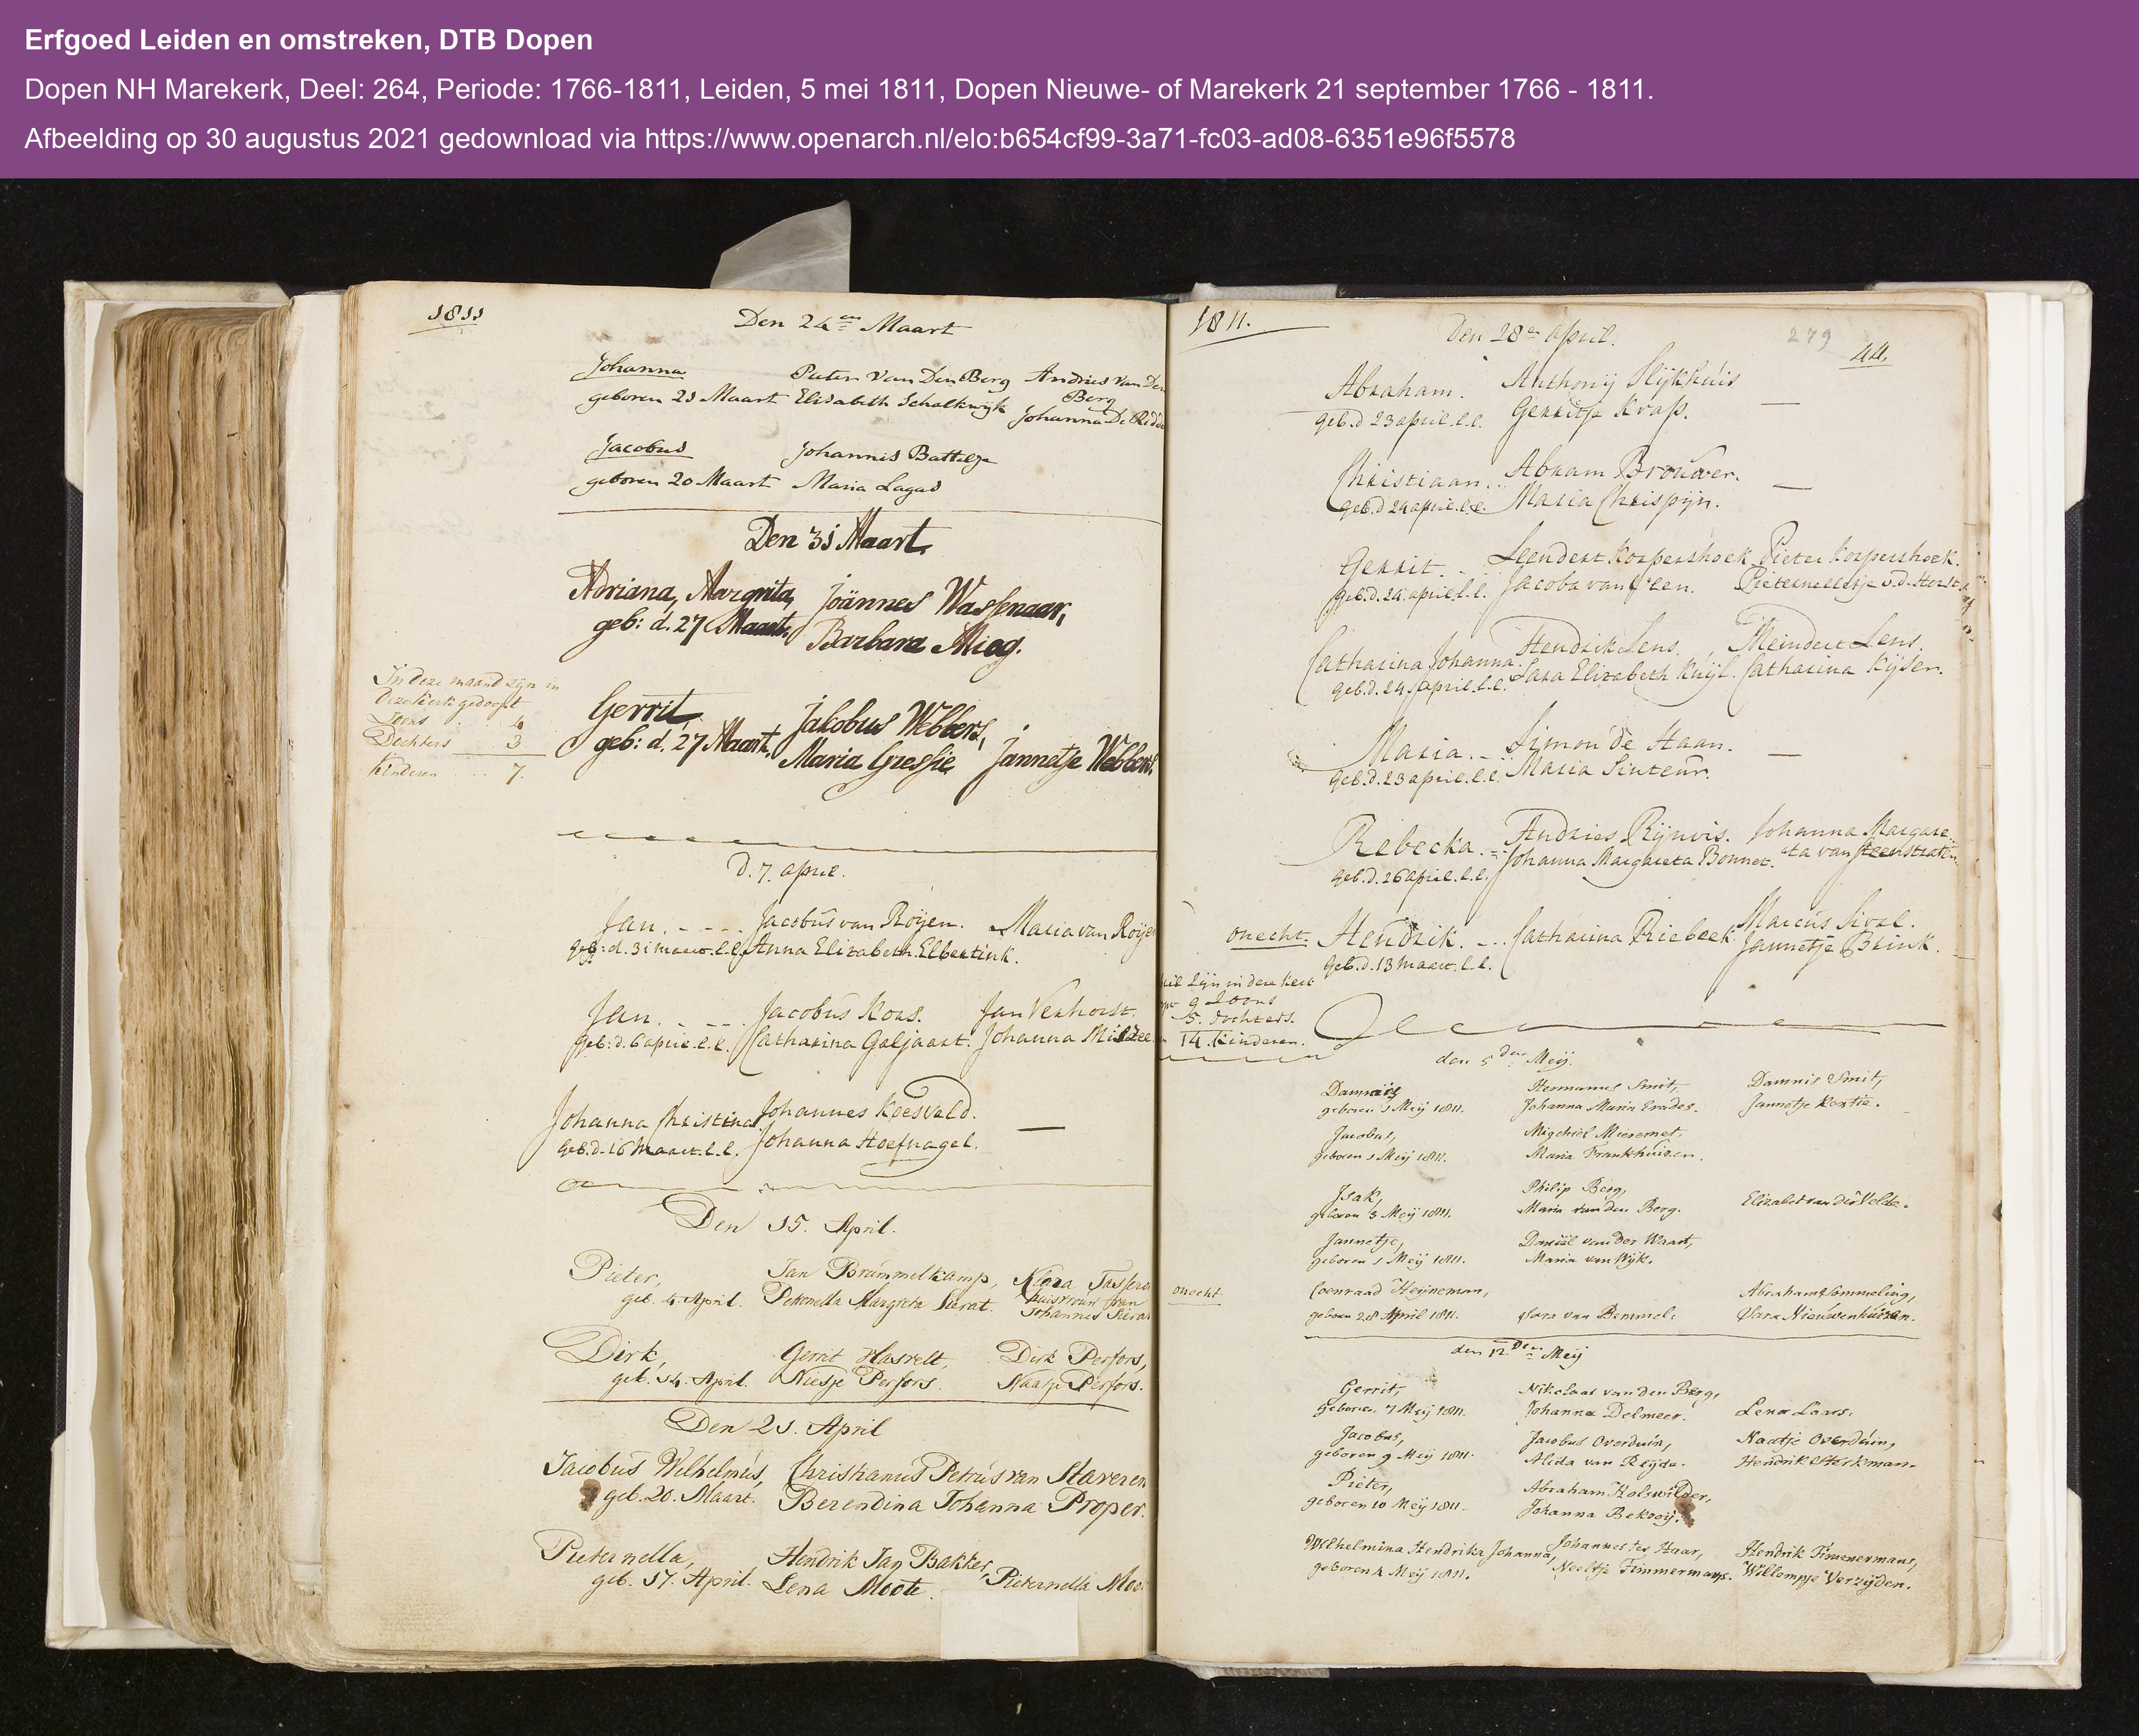 Erfgoed Leiden en omstreken, DTB Dopen
Dopen NH Marekerk, Deel: 264, Periode: 1766-1811, Leiden, 5 mei 1811, Dopen Nieuwe- of Marekerk 21 september 1766 - 1811.
Afbeelding op 30 augustus 2021 gedownload via https://www.openarch.nl/elo:b654cf99-3a71-fc03-ad08-6351e96f5578
1811
Den 24en Maart
Johanna Pieter Van Den Berg Andries Van Den
geboren 21 Maart Elisabeth Schalkwijk Berg
Johanna De Ridde
Jacobus Johannis Battelje
geboren 20 Maart Maria Lagas
Den 31 Maart
Adriana, Margrita, Joännes Wassenaar,
geb: d. 27 Maart, Barbara Mieg.
In deze maand zijn in
deze kerk gedoopt
Zoons 4
Dochters 3
Kinderen 7.
Gerrit, Jakobus Webbers,
geb: d. 27 Maart, Maria Gressie, Jannetje Webbers.
D. 7. april.
Jan. Jacobus van Roijen. Maria van Roije
geb: d. 31 maart. l.l. Anna Elizabeth Elbertink.
Jan. Jacobus Koas. Jan Verhorst.
geb: d. 6 april. l.l. Catharina Galjaart. Johanna
Johanna Christina Johannes Koesveld.
geb. d. 16 Maart. l.l. Johanna Hoefnagel.
Den 15. April.
Pieter, Jan Brummelkamp,
geb. 4. April. Petronella Margreta Sierat. huisvrouw van
Johannes Siera
Dirk, Gerrit Hasselt, Dirk Perfors,
geb. 14. April. Niesje Perfors. Naatje Perfors.
Den 21. April
Jacobus Wilhelmus, Christianus Petrus van Staveren
geb. 20. Maart. Berendina Johanna Proper.
Pieternella, Hendrik Jan Bakker,
geb. 17. April. Lena Moote. Pieternella Moo
1811.
Den 28en april.
279
44.
Abraham. Anthonij Slijkhuis
geb. d 23 april. l.l. Gerritje Krap.
Christiaan. Abram Brouwer.
geb. d 24 april. l.l. Maria Chrispijn.
Gerrit. Leendert Korpershoek, Pieter Korpershoek.
geb. d. 24. april. l.l. Jacoba van Pieternelletje v.d. Horst
Hendrik Lens. Meindert Lens.
Catharina Johanna. Sara Elizabeth Kuijl. Catharina Kijser.
geb. d. 24. april. l.l.
Maria. Simon de Haan.
geb. d. 23 april. l.l. Maria Sinteur.
Rebecka. Andries Rijnvis. Johanna Margare
Johanna Margareta Bonnet. ta van Steenstraten.
geb. d. 26 april. l.l.
onecht. Hendrik. Catharina Riebeek. Marcus Sival.
geb. d. 13 maart. l.l. Jannetje Brink.
zijn in deze kerk
9 Zoons
5. dochters.
14 kinderen.
den 5den Meij.
Damnis Hermanus Smit, Damnis Smit,
geboren 1 Meij 1811. Johanna Maria Erades. Jannetje Kertie.
Jacobus, Migchiel Mieremet,
geboren 1 Meij 1811. Maria Frankhuizen.
Isak, Philip Berg,
geboren 3 Meij 1811. Maria van den Berg. Elizabet van der Velde.
Jannetje, Daniël van der Waart,
geboren 1 Meij 1811. Maria van Wijk.
onecht. Coenraad Heijneman, Abraham Sommeling,
geboren 28 April 1811. Sara van Bemmel. Sara Nieuwenhuizen.
den 12den Meij
Gerrit, Nikolaas van den Berg,
geboren 7 Meij 1811. Johanna Delmeer. Lena Laars.
Jacobus, Jacobus Overduin, Naatje Overduin,
geboren 9 Meij 1811. Alida van Reijde. Hendrik Sterkman.
Pieter, Abraham Holswilder,
geboren 10 Meij 1811. Johanna Bekooij.
Wilhelmina Hendrika Johanna, Johannes ter Haar, Hendrik Timmermans,
geboren 4 Meij 1811. Neeltje Timmermans. Willempje Verzijden.